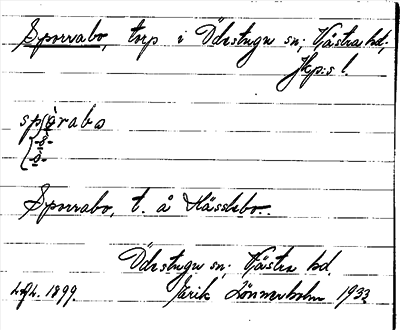 Sporrabo, torp i Ödestugu sn; Västra hd;
Jkp:s l.
spȯrabo
-o̤-
-o̤-
Sporrabo, t. å Hässlebo.
Ödestugu sn; Västra hd.
1899. Erik Lönnerholm 1933